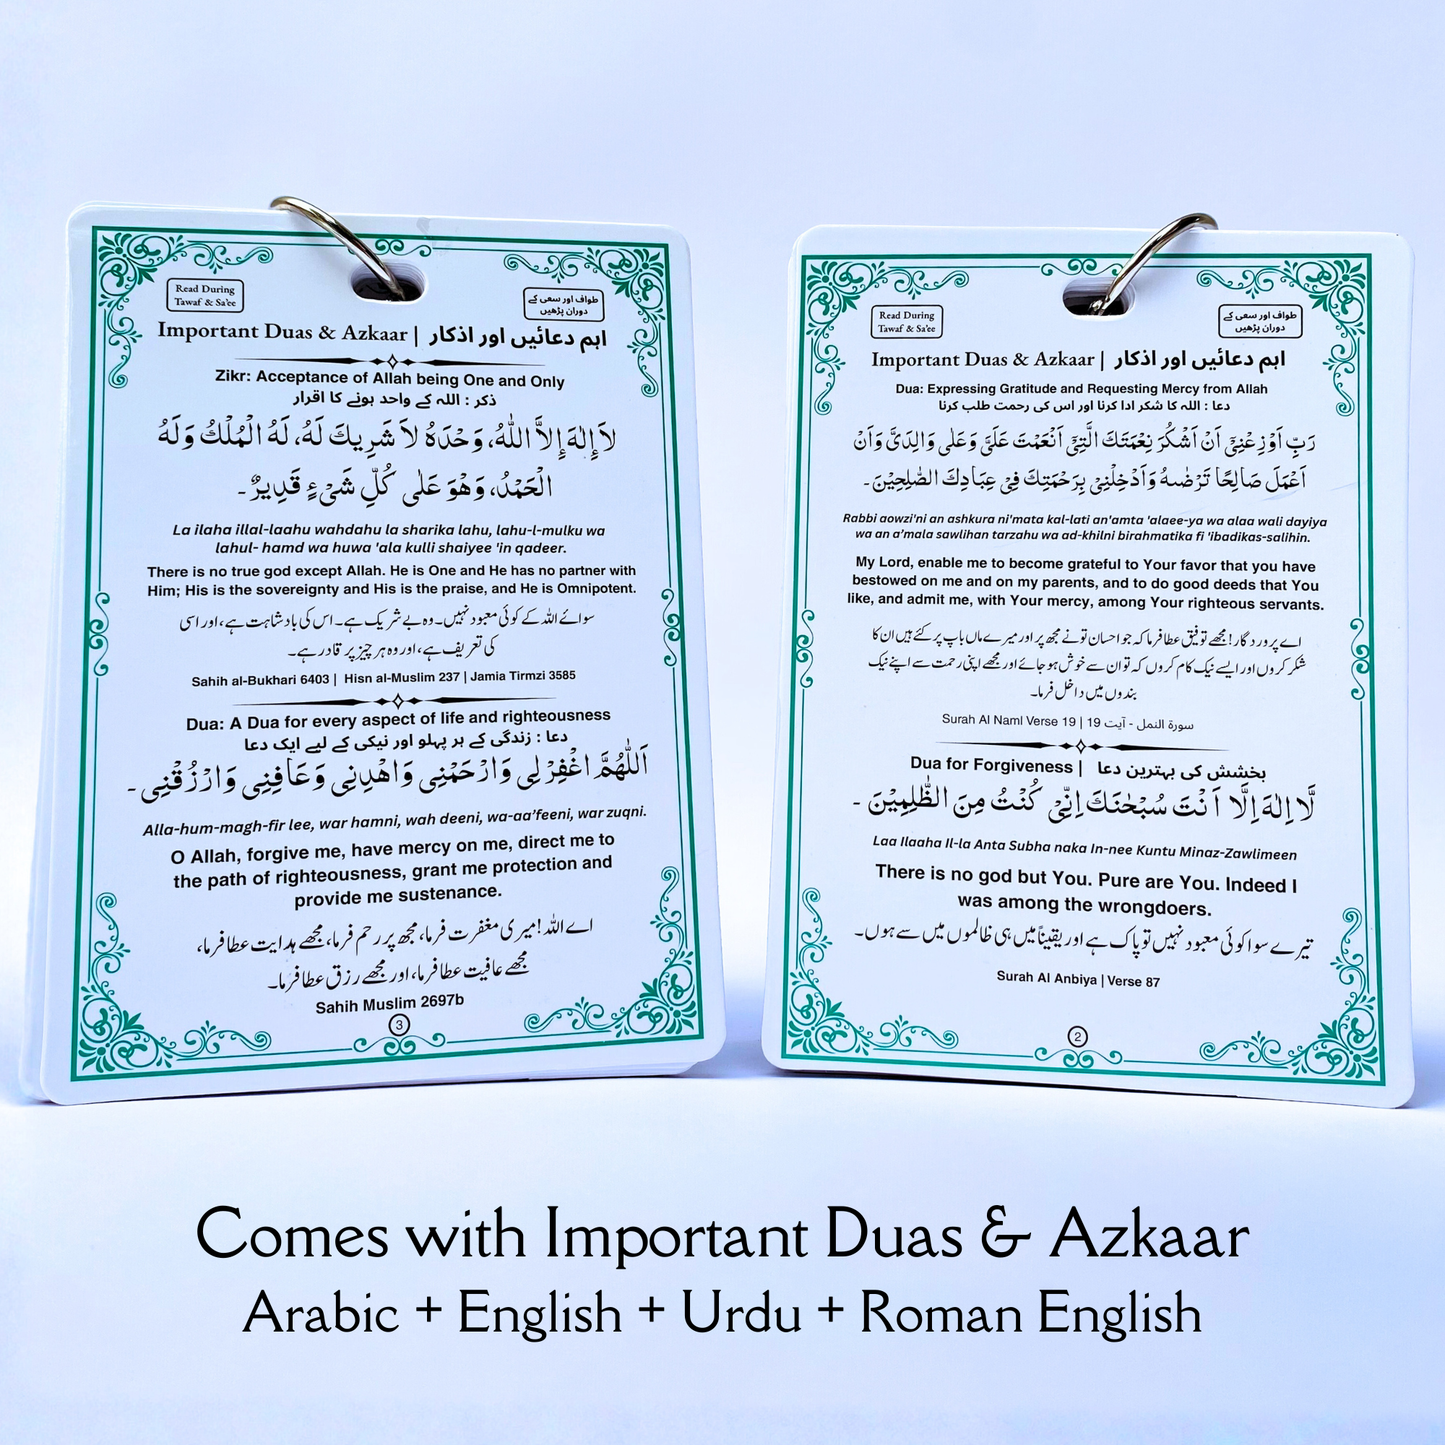 Read During
Tawaf & Sa'ee
طواف اور سعی کے
دوران پڑھیں
Important Duas & Azkaar | اہم دعائیں اور اذکار
Zikr: Acceptance of Allah being One and Only
ذکر : اللہ کے واحد ہونے کا اقرار
لَا إِلٰهَ إِلَّا اللّٰهُ، وَحْدَهُ لَا شَرِيكَ لَهُ، لَهُ الْمُلْكُ وَلَهُ
الْحَمْدُ، وَهُوَ عَلٰى كُلِّ شَيْءٍ قَدِيرٌ۔
La ilaha illal-laahu wahdahu la sharika lahu, lahu-l-mulku wa
lahul- hamd wa huwa 'ala kulli shaiyee 'in qadeer.
There is no true god except Allah. He is One and He has no partner with
Him; His is the sovereignty and His is the praise, and He is Omnipotent.
سوائے اللہ کے کوئی معبود نہیں۔ وہ بے شریک ہے۔ اس کی بادشاہت ہے، اور اسی
کی تعریف ہے، اور وہ ہر چیز پر قادر ہے۔
Sahih al-Bukhari 6403 | Hisn al-Muslim 237 | Jamia Tirmzi 3585
Dua: A Dua for every aspect of life and righteousness
دعا : زندگی کے ہر پہلو اور نیکی کے لیے ایک دعا
اَللّٰهُمَّ اغْفِرْ لِي وَارْحَمْنِي وَاهْدِنِي وَعَافِنِي وَارْزُقْنِي۔
Alla-hum-magh-fir lee, war hamni, wah deeni, wa-aa'feeni, war zuqni.
O Allah, forgive me, have mercy on me, direct me to
the path of righteousness, grant me protection and
provide me sustenance.
اے اللہ! میری مغفرت فرما، مجھ پر رحم فرما، مجھے ہدایت عطا فرما،
مجھے عافیت عطا فرما، اور مجھے رزق عطا فرما۔
Sahih Muslim 2697b
3
Read During
Tawaf & Sa'ee
طواف اور سعی کے
دوران پڑھیں
Important Duas & Azkaar | اہم دعائیں اور اذکار
Dua: Expressing Gratitude and Requesting Mercy from Allah
دعا : اللہ کا شکر ادا کرنا اور اس کی رحمت طلب کرنا
رَبِّ اَوْزِعْنِیْۤ اَنْ اَشْكُرَ نِعْمَتَكَ الَّتِیْۤ اَنْعَمْتَ عَلَیَّ وَعَلٰی وَالِدَیَّ وَاَنْ
اَعْمَلَ صَالِحًا تَرْضٰىهُ وَاَدْخِلْنِیْ بِرَحْمَتِكَ فِیْ عِبَادِكَ الصّٰلِحِیْنَ۔
Rabbi aowzi'ni an ashkura ni'mata kal-lati an'amta 'alaee-ya wa alaa wali dayiya
wa an a'mala sawlihan tarzahu wa ad-khilni birahmatika fi 'ibadikas-salihin.
My Lord, enable me to become grateful to Your favor that you have
bestowed on me and on my parents, and to do good deeds that You
like, and admit me, with Your mercy, among Your righteous servants.
اے پروردگار! مجھے توفیق عطا فرما کہ جو احسان تونے مجھ پر اور میرے ماں باپ پر کئے ہیں ان کا
شکر کروں اور ایسے نیک کام کروں کہ تو ان سے خوش ہو جائے اور مجھے اپنی رحمت سے اپنے نیک
بندوں میں داخل فرما۔
Surah Al Naml Verse 19 | سورة النمل - آیت 19
Dua for Forgiveness | بخشش کی بہترین دعا
لَّا اِلٰهَ اِلَّا اَنْتَ سُبْحٰنَكَ اِنِّیْ كُنْتُ مِنَ الظّٰلِمِیْنَ ۔
Laa Ilaaha Il-la Anta Subha naka In-nee Kuntu Minaz-Zawlimeen
There is no god but You. Pure are You. Indeed I
was among the wrongdoers.
تیرے سوا کوئی معبود نہیں تو پاک ہے اور یقیناً میں ہی ظالموں میں سے ہوں۔
Surah Al Anbiya | Verse 87
2
Comes with Important Duas & Azkaar
Arabic + English + Urdu + Roman English